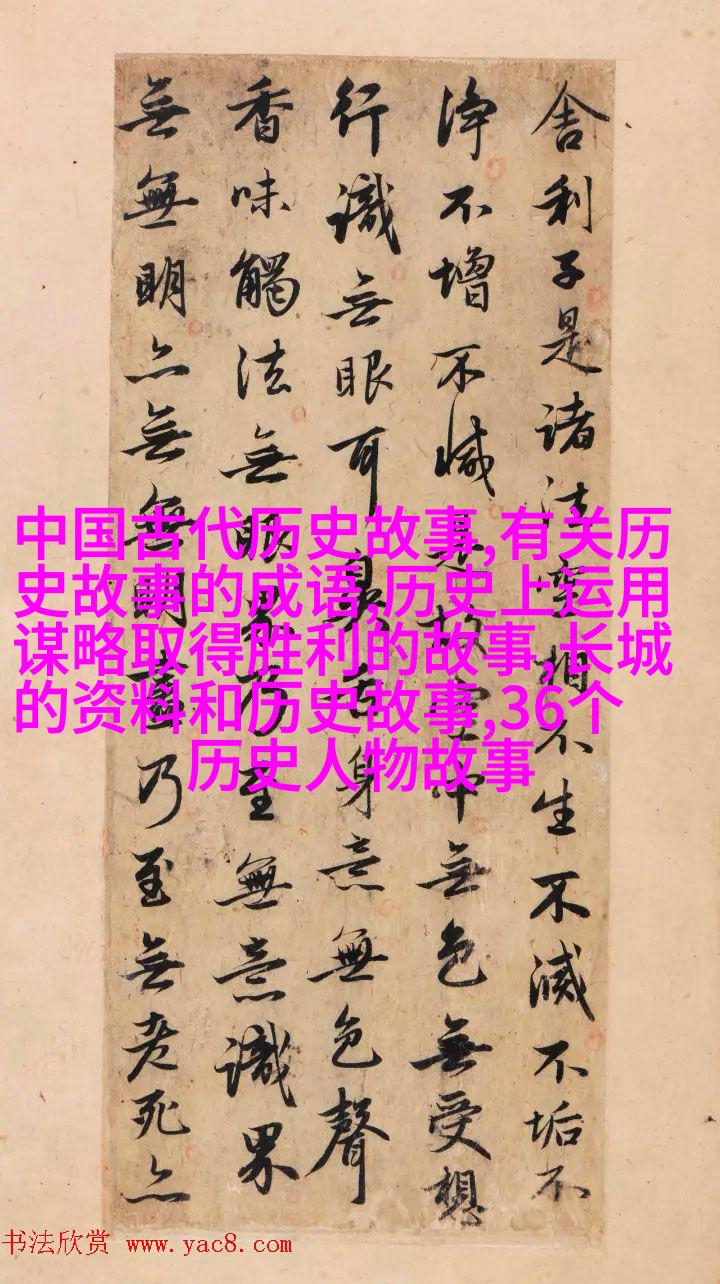 舍利子是諸法空相不生不滅不垢不
淨不增不減是故空中無色無受想
行識無眼耳鼻舌身意無色聲
香味觸法無眼界乃至無意識界
無無明亦無無明盡乃至無老死亦
中国古代历史故事,有关历
史故事的成语,历史上运用
谋略取得胜利的故事,长城
的资料和历史故事,36个
历史人物故事
书法欣赏 www.yac8.com